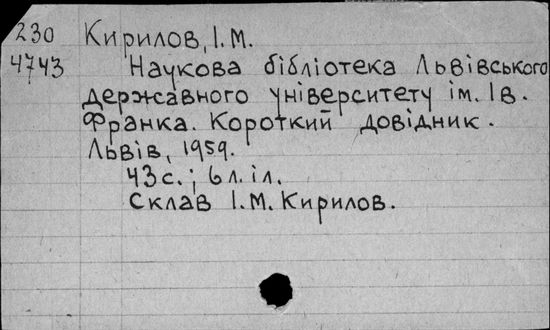 230 Кирилов, І.М.
4743 Наукова бібліотека Львівського
державного університету ім. Ів.
Франка. Короткий довідник.
Львів, 1959.
43 с.; 6 л. іл.
Склав І.М. Кирилов.